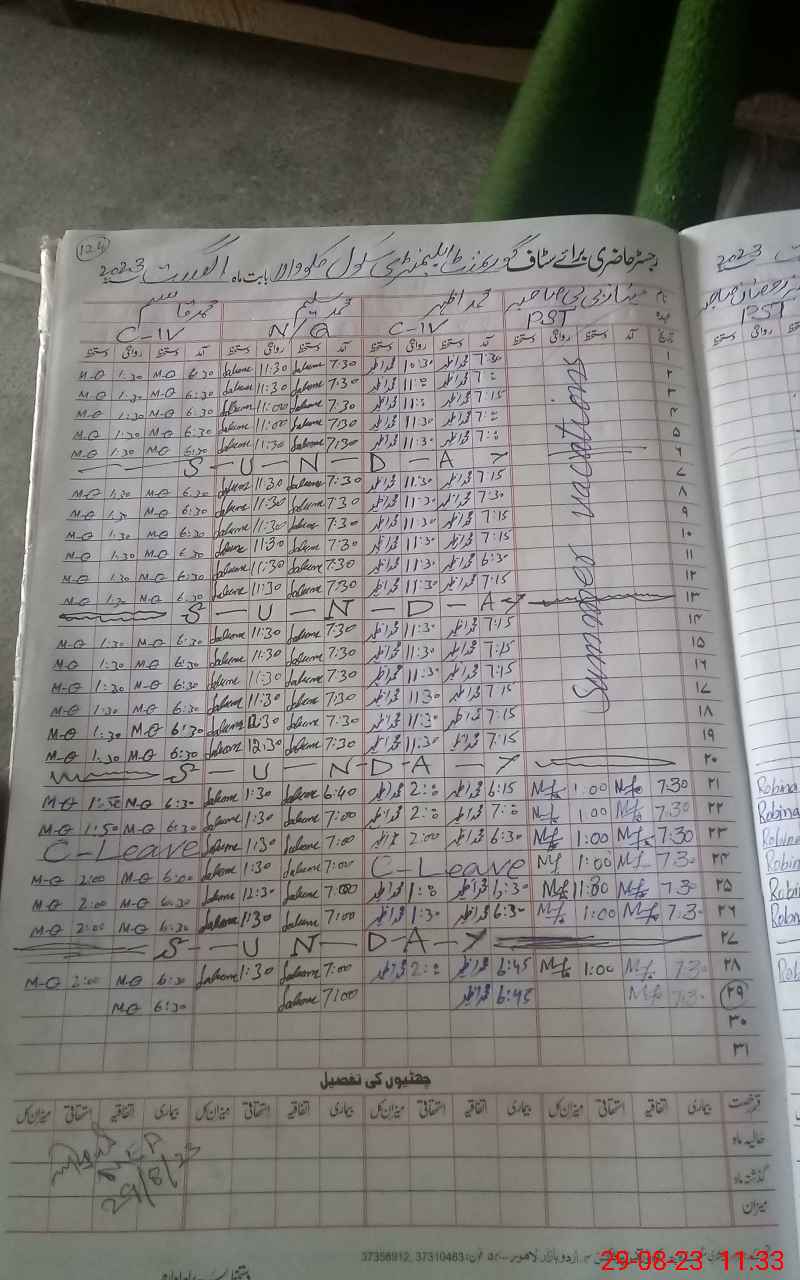 124
رجسٹر حاضری برائے سٹاف گورنمنٹ ایلیمنٹری سکول بابت ماہ اگست 2023
نام محمد اظہر محمد سلیم محمد قاسم
عہدہ PST C-IV N/Q C-IV
تاریخ آمد دستخط روانگی دستخط آمد دستخط روانگی دستخط آمد دستخط روانگی دستخط آمد دستخط روانگی دستخط
Summer vacations
M-Q 1:30 M-Q 6:30 Saleem 11:30 Saleem 7:30 محمد اظہر 10:30 محمد اظہر 7:30 ۱
M-Q 1:30 M-Q 6:30 Saleem 11:30 Saleem 7:30 محمد اظہر 11:00 محمد اظہر 7:00 ۲
M-Q 1:30 M-Q 6:30 Saleem 11:00 Saleem 7:30 محمد اظہر 11:00 محمد اظہر 7:15 ۳
M-Q 1:30 M-Q 6:30 Saleem 11:00 Saleem 7:30 محمد اظہر 11:30 محمد اظہر 7:00 ۴
M-Q 1:30 M-Q 6:30 Saleem 11:30 Saleem 7:30 محمد اظہر 11:30 محمد اظہر 7:00 ۵
S-U-N-D-A-Y ۶
M-Q 1:30 M-Q 6:30 Saleem 11:30 Saleem 7:30 محمد اظہر 11:30 محمد اظہر 7:15 ۷
M-Q 1:30 M-Q 6:30 Saleem 11:30 Saleem 7:30 محمد اظہر 11:30 محمد اظہر 7:30 ۸
M-Q 1:30 M-Q 6:30 Saleem 11:30 Saleem 7:30 محمد اظہر 11:30 محمد اظہر 7:15 ۹
M-Q 1:30 M-Q 6:30 Saleem 11:30 Saleem 7:30 محمد اظہر 11:30 محمد اظہر 7:15 ۱۰
M-Q 1:30 M-Q 6:30 Saleem 11:30 Saleem 7:30 محمد اظہر 11:30 محمد اظہر 6:30 ۱۱
M-Q 1:30 M-Q 6:30 Saleem 11:30 Saleem 7:30 محمد اظہر 11:30 محمد اظہر 7:15 ۱۲
S-U-N-D-A-Y ۱۳
M-Q 1:30 M-Q 6:30 Saleem 11:30 Saleem 7:30 محمد اظہر 11:30 محمد اظہر 7:15 ۱۴
M-Q 1:30 M-Q 6:30 Saleem 11:30 Saleem 7:30 محمد اظہر 11:30 محمد اظہر 7:15 ۱۵
M-Q 1:30 M-Q 6:30 Saleem 11:30 Saleem 7:30 محمد اظہر 11:30 محمد اظہر 7:15 ۱۶
M-Q 1:30 M-Q 6:30 Saleem 11:30 Saleem 7:30 محمد اظہر 11:30 محمد اظہر 7:15 ۱۷
M-Q 1:30 M-Q 6:30 Saleem 12:30 Saleem 7:30 محمد اظہر 11:30 محمد اظہر 7:15 ۱۸
M-Q 1:30 M-Q 6:30 Saleem 12:30 Saleem 7:30 محمد اظہر 11:30 محمد اظہر 7:15 ۱۹
S-U-N-D-A-Y ۲۰
M-Q 1:50 M-Q 6:30 Saleem 1:30 Saleem 6:40 محمد اظہر 2:00 محمد اظہر 6:15 1:00 7:30 ۲۱
M-Q 1:50 M-Q 6:30 Saleem 1:30 Saleem 7:00 محمد اظہر 2:00 محمد اظہر 7:00 1:00 7:30 ۲۲
C-Leave Saleem 1:30 Saleem 7:00 محمد اظہر 2:00 محمد اظہر 6:30 1:00 7:30 ۲۳
M-Q 2:00 M-Q 6:00 Saleem 1:30 Saleem 7:00 C-Leave 1:00 7:30 ۲۴
M-Q 2:00 M-Q 6:30 Saleem 12:30 Saleem 7:00 محمد اظہر 1:00 محمد اظہر 6:30 11:30 7:30 ۲۵
M-Q 2:00 M-Q 6:30 Saleem 1:30 Saleem 7:00 محمد اظہر 1:30 محمد اظہر 6:30 1:00 7:30 ۲۶
S-U-N-D-A-Y ۲۷
M-Q 2:00 M-Q 6:30 Saleem 1:30 Saleem 7:00 محمد اظہر 2:00 محمد اظہر 6:45 1:00 7:30 ۲۸
M-Q 6:30 Saleem 7:00 محمد اظہر 6:45 7:30 ۲۹
۳۰
۳۱
چھٹیوں کی تفصیل
فرخصت بیماری اتفاقیہ استحقاقی میزان کل بیماری اتفاقیہ استحقاقی میزان کل بیماری اتفاقیہ استحقاقی میزان کل بیماری اتفاقیہ استحقاقی میزان کل
حالیہ ماہ
گذشتہ ماہ
میزان
29/8/23
اردو بازار لاہور فون: 37310463, 37356912
2023
PST
Robina
Robina
Robina
Robina
Robina
Robina
29-08-23 11:33